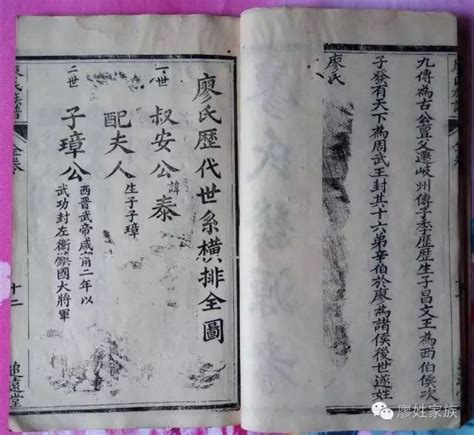 九傳為古公亶父遷岐州傳子季歷歷生子昌文王為西伯侯次
子發有天下為周武王封其十六弟辛伯於廖為諸侯後世遂姓
廖氏
廖氏歷代世系橫排全圖
一世 叔安公諱泰
配夫人 生子子璋
二世 子璋公 西晉武帝咸甯二年以
武功封左衛鎮國大將軍
廖氏族譜
全卷
十二
追遠堂
廖姓家族